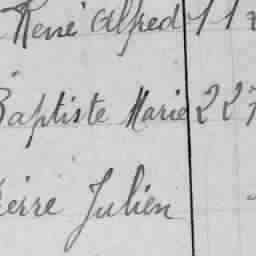 René Alfred 11
Baptiste Marie 227
Pierre Julien